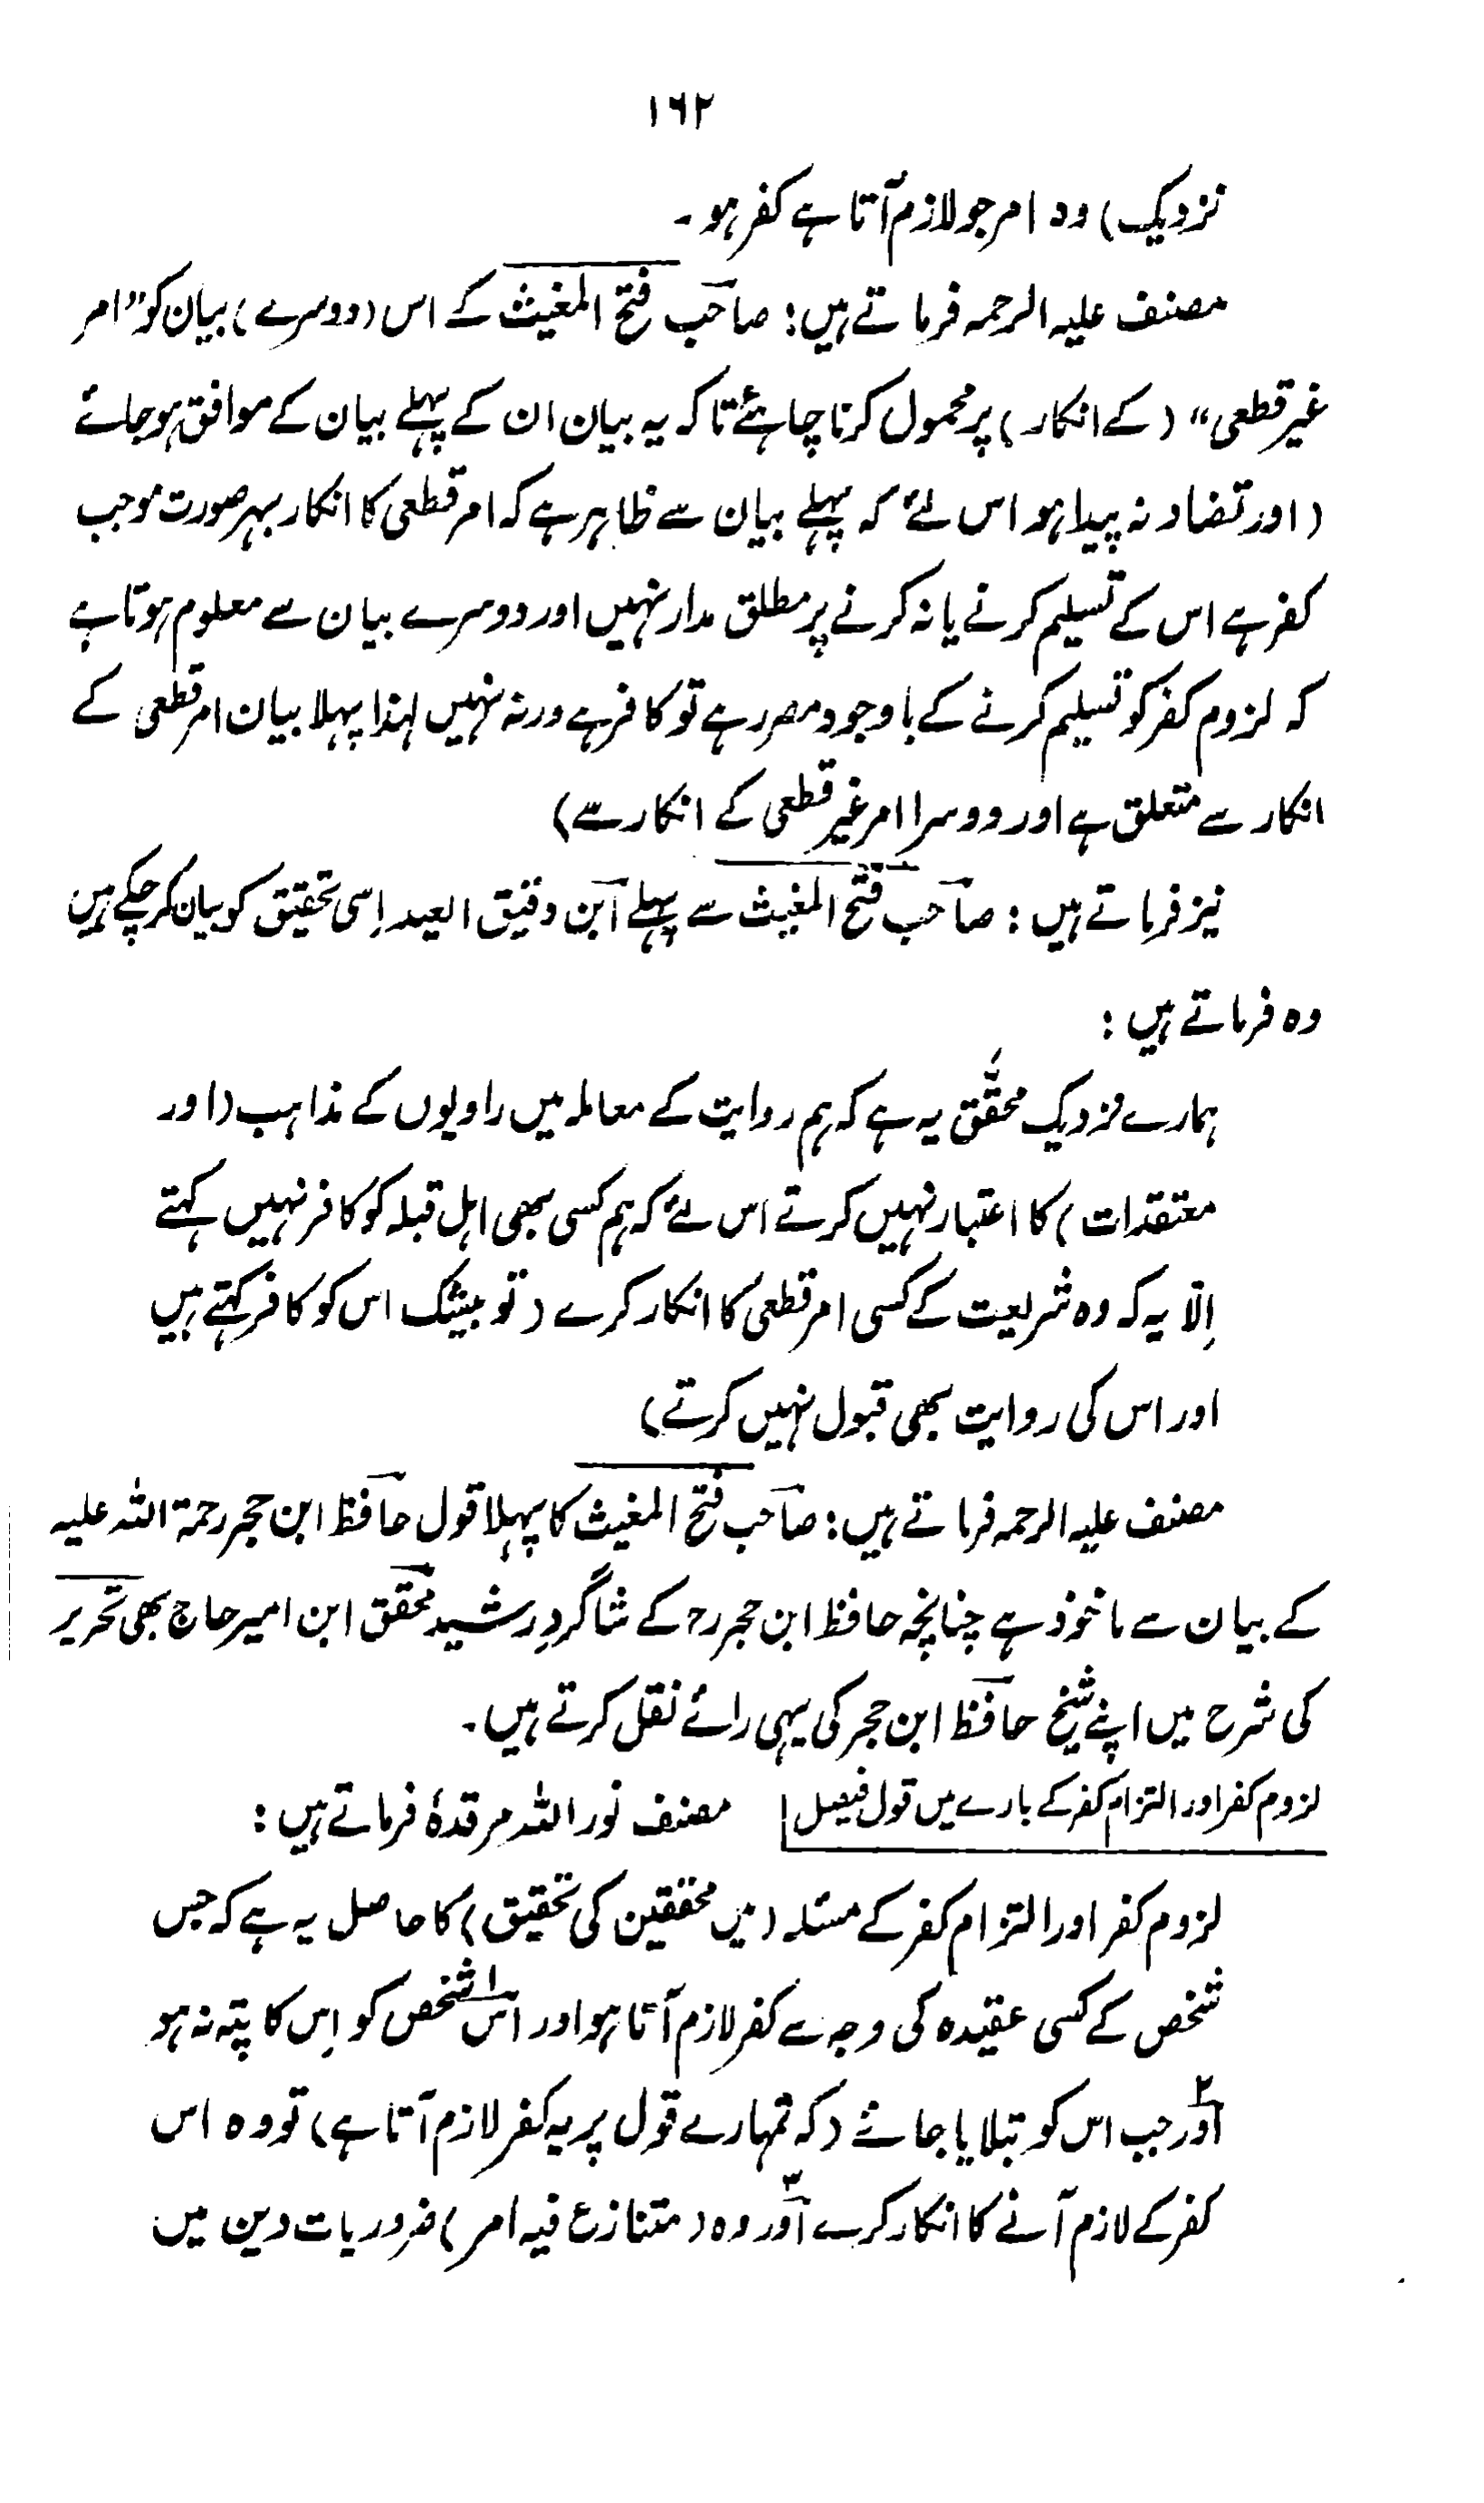 ۱۶۲
نزدیک) وہ امر جو لازم آتا ہے کفر ہو۔
مصنف علیہ الرحمہ فرماتے ہیں: صاحب فتح المغیث کے اس (دوسرے) بیان کو "امر
غیر قطعی" (کے انکار) پر محمول کرنا چاہئے تاکہ یہ بیان ان کے پہلے بیان کے موافق ہو جائے
(اور تضاد نہ پیدا ہو اس لئے کہ پہلے بیان سے ظاہر ہے کہ امر قطعی کا انکار بہر صورت موجب
کفر ہے اس کے تسلیم کرنے یا نہ کرنے پر مطلق مدار نہیں اور دوسرے بیان سے معلوم ہوتا ہے
کہ لزوم کفر کو تسلیم کرنے کے باوجود مصر رہے تو کافر ہے ورنہ نہیں لہٰذا پہلا بیان امر قطعی کے
انکار سے متعلق ہے اور دوسرا امر غیر قطعی کے انکار سے)
نیز فرماتے ہیں: صاحب فتح المغیث سے پہلے ابن دقیق العید اِسی تحقیق کو بیان کر چکے ہیں
وہ فرماتے ہیں:
ہمارے نزدیک محقَّق یہ ہے کہ ہم روایت کے معاملہ میں راویوں کے مذاہب (اور
معتقدات) کا اعتبار نہیں کرتے اس لئے کہ ہم کسی بھی اہل قبلہ کو کافر نہیں کہتے
اِلّا یہ کہ وہ شریعت کے کسی امر قطعی کا انکار کرے (تو بیشک اس کو کافر کہتے ہیں
اور اس کی روایت بھی قبول نہیں کرتے)
مصنف علیہ الرحمہ فرماتے ہیں: صاحب فتح المغیث کا پہلا قول حافظ ابن حجر رحمۃ اللہ علیہ
کے بیان سے ماخوذ ہے چنانچہ حافظ ابن حجرؒ کے شاگردِ رشید محقق ابن امیر حاج بھی تحریر
کی شرح میں اپنے شیخ حافظ ابن حجر کی یہی رائے نقل کرتے ہیں۔
لزوم کفر اور التزام کفر کے بارے میں قول فیصل مصنف نور اللہ مرقدہٗ فرماتے ہیں:
لزوم کفر اور التزام کفر کے مسئلہ (میں محققین کی تحقیق) کا حاصل یہ ہے کہ جس
شخص کے کسی عقیدہ کی وجہ سے کفر لازم آتا ہو اور ۱ اس شخص کو اِس کا پتہ نہ ہو
۲ اور جب اس کو بتلایا جائے (کہ تمہارے قول پر یہ کفر لازم آتا ہے) تو وہ اس
کفر کے لازم آنے کا انکار کرے ۳ اور وہ (متنازع فیہ امر) ضروریات دین میں